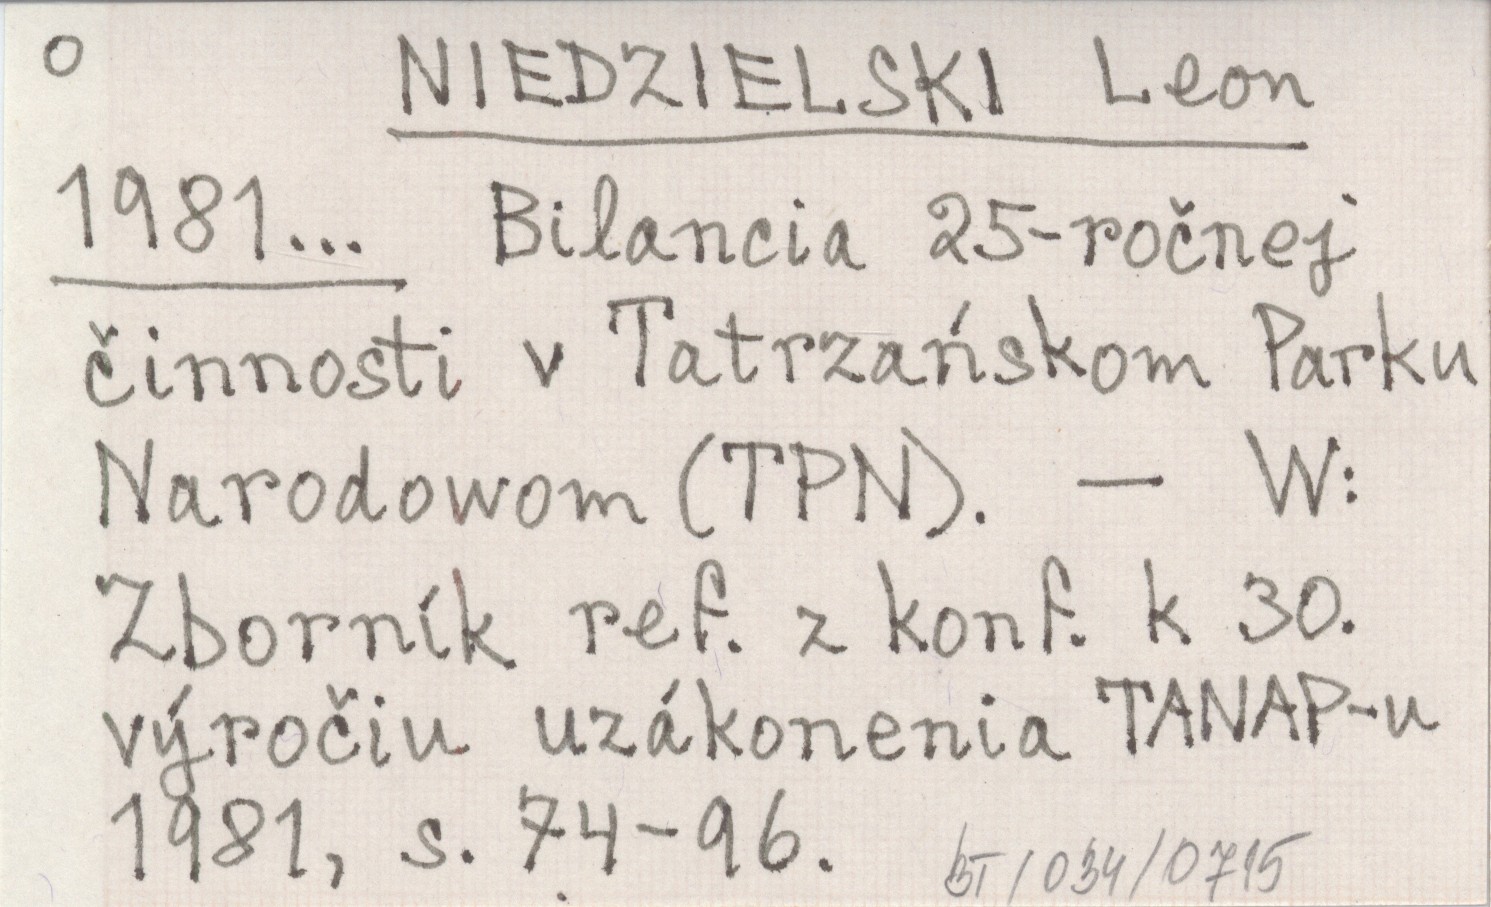 O NIEDZIELSKI Leon
1981... Bilancia 25-ročnej
činnosti v Tatrzańskom Parku
Narodowom (TPN). — W:
Zborník ref. z konf. k 30.
výročiu uzákonenia TANAP-u
1981, s. 74-96.
BT/034/0715